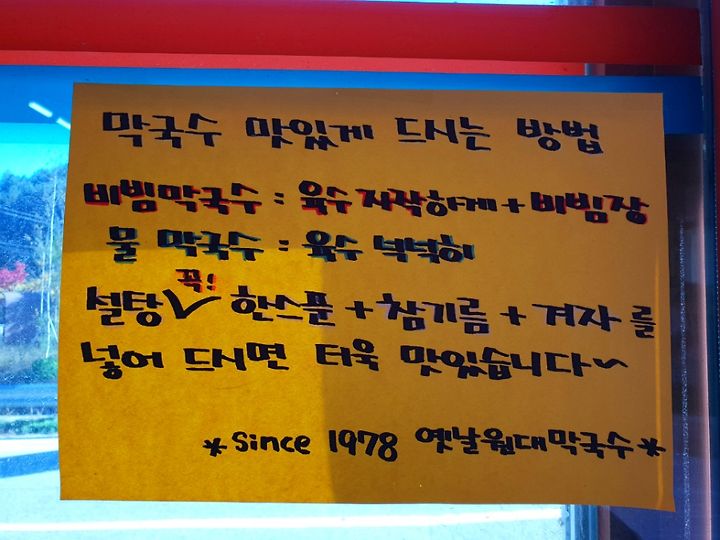 막국수 맛있게 드시는 방법
비빔막국수 : 육수 자작하게 + 비빔장
물 막국수 : 육수 넉넉히
꼭!
설탕 ✓ 한스푼 + 참기름 + 겨자 를
넣어 드시면 더욱 맛있습니다~
*Since 1978 옛날원대막국수*